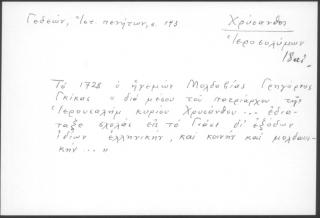 Γεδεών, Ἱστ. πενήτων, σ. 193
Χρύσανθος
Ἱεροσολύμων
18αι.
Τὸ 1728 ὁ ἡγεμὼν Μολδαβίας Γρηγόριος
Γκίκας « διὰ μέσου τοῦ πατριάρχου τῆς
Ἱερουσαλὴμ κυρίου Χρυσάνθου ... ἐδιά-
ταξε σχολὰς εἰς τὸ Γιάσι δι' ἐξόδων
ἰδίων ἑλληνικήν, καὶ κοινὴν καὶ μολδαυι-
κήν ... »